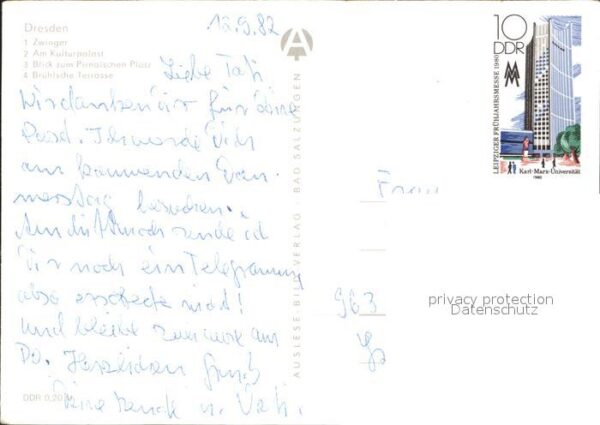 12.9.82
Dresden
1 Zwinger
2 Am Kulturpalast
3 Blick zum Pirnaischen Platz
4 Brühlsche Terrasse
Liebe Tati
Wir danken Dir für Deine
Post. Ich werde Dich
am kommenden
besuchen.
Am Mittwoch sende ich
Dir noch ein Telegramm
also nicht!
Und bleibe zuhause am
Do. Herzlichen Gruß
Deine u.
DDR 0,20 M
AUSLESE-BILD-VERLAG · BAD SALZUNGEN
10
DDR
LEIPZIGER FRÜHJAHRSMESSE 1980
Karl-Marx-Universität
1980
Frau
963
privacy protection
Datenschutz